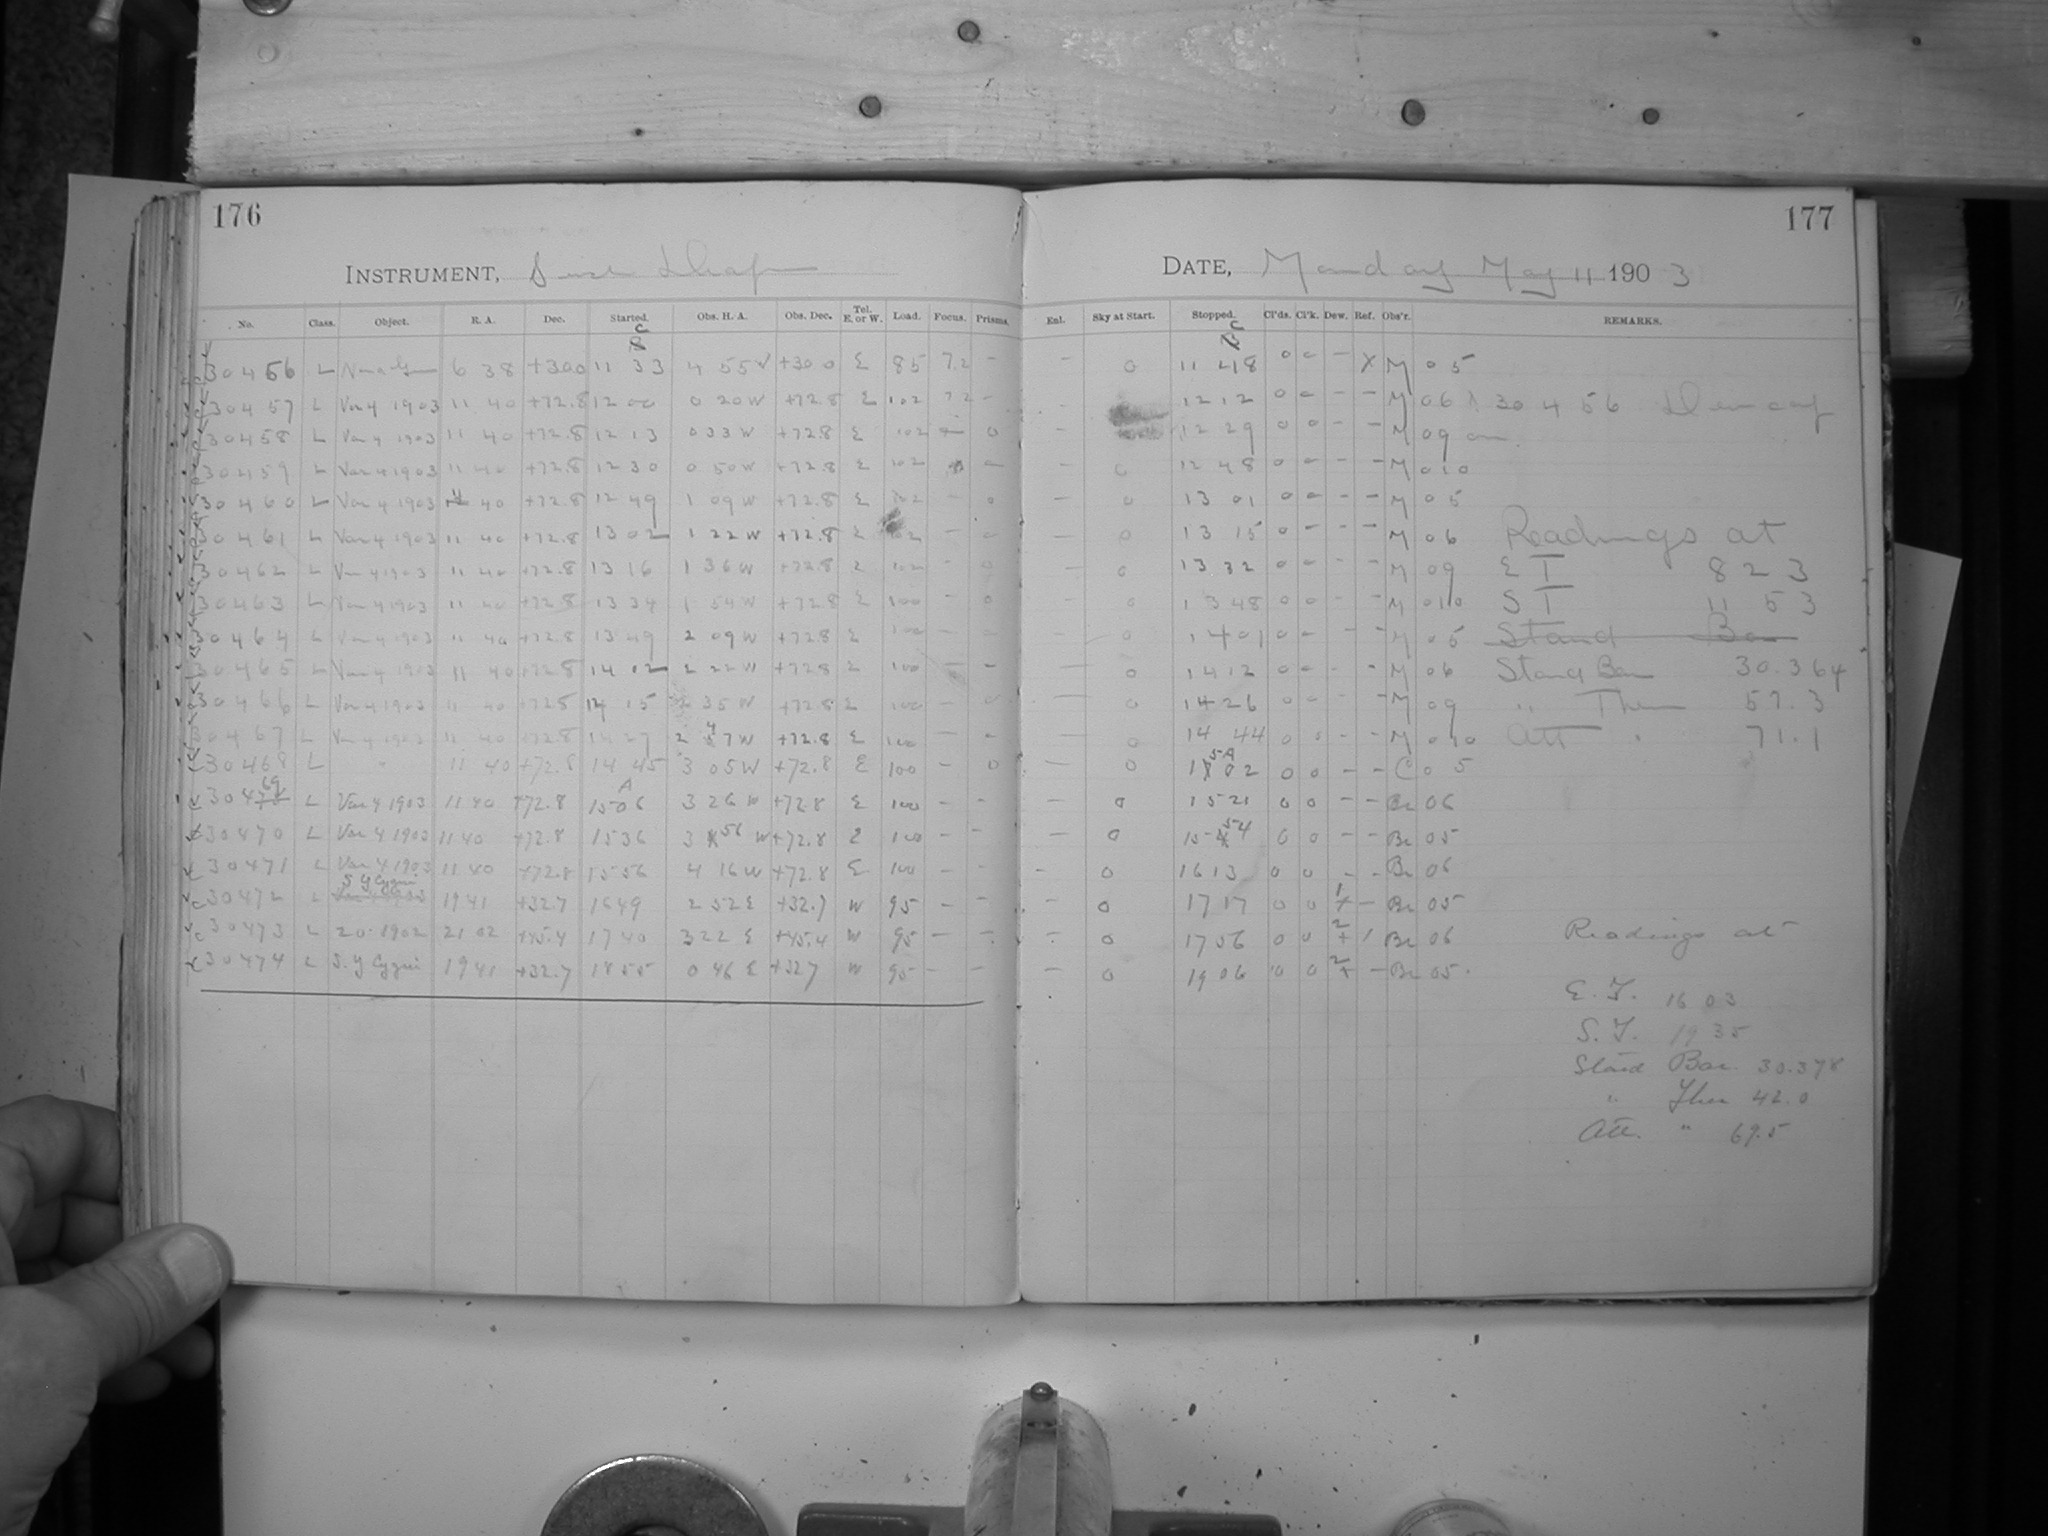 176
INSTRUMENT,
No. Class. Object. R. A. Dec. Started. Obs. H. A. Obs. Dec. Tel. E. or W. Load. Focus. Prisms.
30456 L 6 38 +30.0 11 33 4 55 W +30.0 E 85 7.2 -
30457 L Var 4 1903 11 40 +72.8 12 00 0 20 W +72.8 E 102 7.2 -
30458 L Var 4 1903 11 40 +72.8 12 13 0 33 W +72.8 E 102 0
30459 L Var 4 1903 11 40 +72.8 12 30 0 50 W +72.8 E 102 -
30460 L Var 4 1903 11 40 +72.8 12 49 1 09 W +72.8 E 102 - 0
30461 L Var 4 1903 11 40 +72.8 13 02 1 22 W +72.8 E 102 - 0
30462 L Var 4 1903 11 40 +72.8 13 16 1 36 W +72.8 E 102 - 0
30463 L Var 4 1903 11 40 +72.8 13 34 1 54 W +72.8 E 100 - 0
30464 L Var 4 1903 11 40 +72.8 13 49 2 09 W +72.8 E 100 -
30465 L Var 4 1903 11 40 +72.8 14 02 2 22 W +72.8 E 100 - -
30466 L Var 4 1903 11 40 +72.8 14 15 2 35 W +72.8 E 100 - 0
30467 L Var 4 1903 11 40 +72.8 14 27 2 47 W +72.8 E 100 -
30468 L " 11 40 +72.8 14 45 3 05 W +72.8 E 100 - 0
30469 L Var 4 1903 11 40 +72.8 15 06 3 26 W +72.8 E 100 - -
30470 L Var 4 1903 11 40 +72.8 15 36 3 56 W +72.8 E 100 - -
30471 L Var 4 1903 11 40 +72.8 15 56 4 16 W +72.8 E 100 - -
30472 L S Y Cygni 19 41 +32.7 16 49 2 52 E +32.7 W 95 - -
30473 L 20.1902 21 02 +45.4 17 40 3 22 E +45.4 W 95 - -
30474 L S. Y Cygni 19 41 +32.7 18 55 0 46 E +32.7 W 95 - -
177
DATE, Monday May 11 1903
Enl. Sky at Start. Stopped. Cl'ds. Cl'k. Dew. Ref. Obs'r. REMARKS.
- 0 11 48 0 0 - X M 05
12 12 0 0 - - M 06 30456
12 29 0 0 - - M 09
- 0 12 48 0 0 - - M 010
- 0 13 01 0 0 - - M 05
- 0 13 15 0 0 - - M 06 Readings at
- 0 13 32 0 0 - - M 09 E T 8 23
- 0 13 48 0 0 - - M 010 S T 11 53
- 0 14 01 0 0 - - M 05 Stand Bar
- 0 14 12 0 0 - - M 06 Stand Bar 30.364
- 0 14 26 0 0 - - M 09 " Ther 57.3
- 0 14 44 0 0 - - M 010 Att " 71.1
- 0 15 02 0 0 - - C 05
- 0 15 21 0 0 - - Br 06
- 0 15 54 0 0 - - Br 05
- 0 16 13 0 0 - - Br 06
- 0 17 17 0 0 1 - Br 05
- 0 0 0 2 + 1 Br 06 Readings at
- 0 19 06 0 0 2 + - Br 05
E. T. 16 03
S. T. 19 35
Stand Bar. 30.378
" Ther 42.0
Att. " 69.5